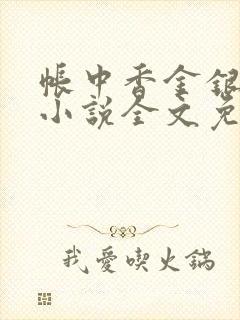 帳中香金銀
小說全文免
我愛喫火鍋